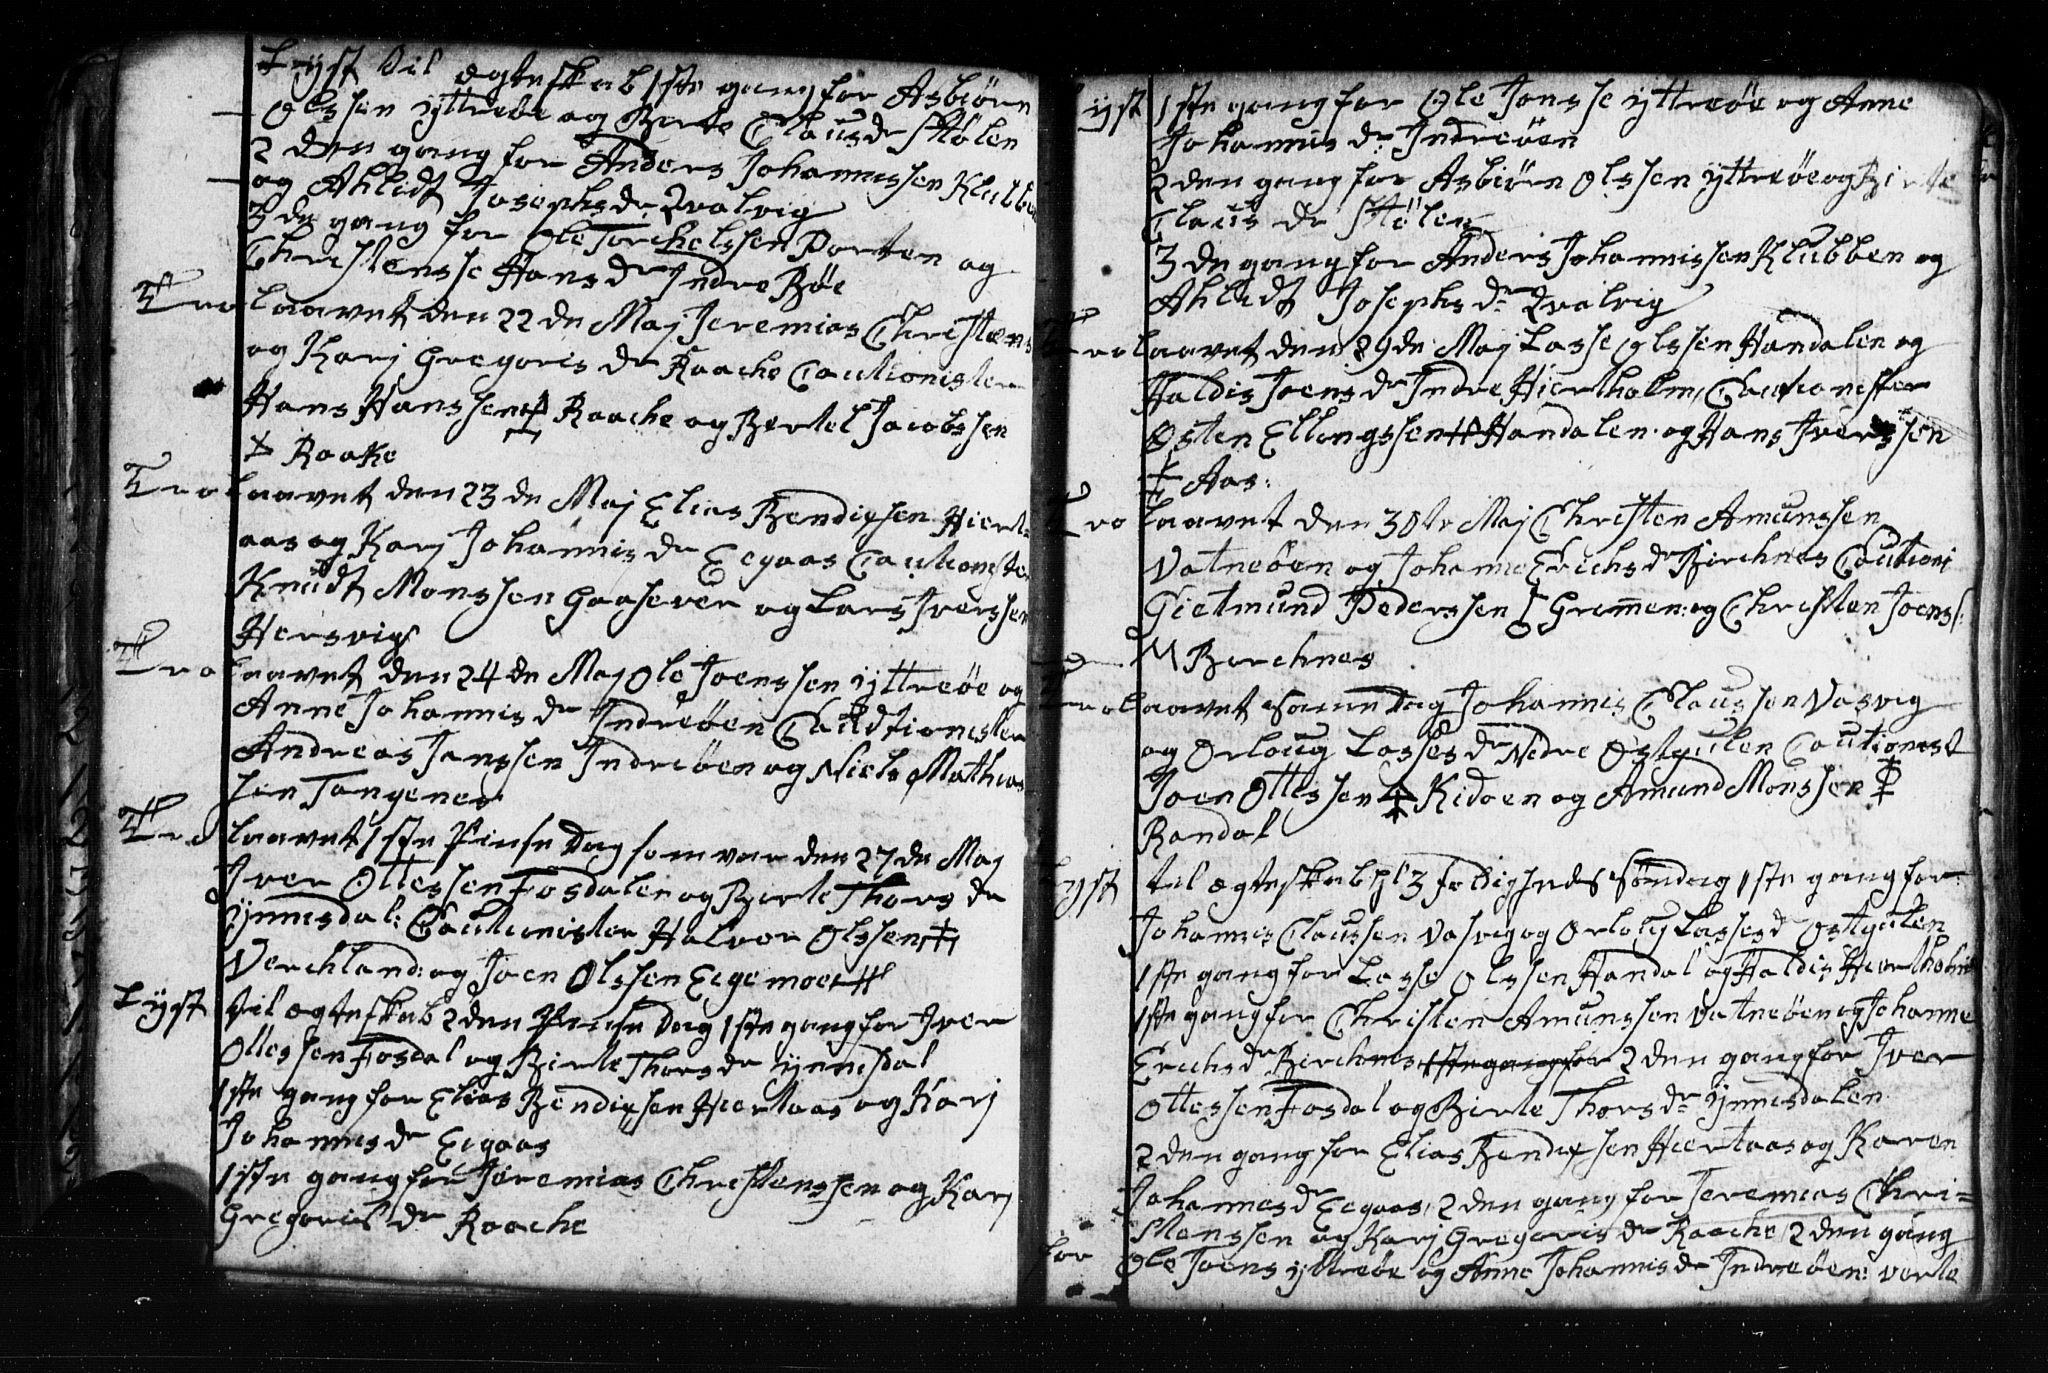 Lyst til ægteskab 1ste gang for Asbiörn
Olssen yttreöe og Berte Clausdr Stölen
2 den gang for Anders Johannissen Klubben
og Ahlidt Josephsdr Qvalvig
3 de gang for Ole Torchelssen Porten og
Christensse Hansdr Indre Böe
Trolaavet den 22 de Maj Jeremias Christens
og Karj Gregoris dr Raache Cautionister
Hans Hanssen Raache og Bertel Jacobssen
Raake
Trolaavet den 23 de Maj Elias Bendixsen Hiert=
aas og Karj Johannis dr Ecgaas Cautionister
Knudt Monssen Gaasevær og Lars Iverssen
Hersvig
Trolaavet den 24 de Maj Ole Joenssen yttreöe og
Anne Johannis dr Indreöen Caudtionister
Andreas Janssen Indreöen og Niels Mathias
sen Tangenes
Trolaavet 1ste Pinse Dag som var den 27 de Maj
Iver Ottessen Fosdalen og Birte Thors dr
ynnisdal: Cautionister Halvor Olssen
Verchland: og Joen Olssen Ecgemoer
Lyst til ægteskab 2den Pinse Dag 1ste gang for Iver
Ottessen Fosdal og Birte Thorsdr ynnisdal
1ste gang for Elias Bendixsen Hiertaas og Karj
Johannisdr Ecgaas
1ste gang for Jeremias Christenssen og Karj
Gregoris dr Raache
Lyst 1ste gang for Ole Jonsse yttreöe og Anne
Johannis dr Indreöen
2 den gang for Asbiörn Olssen yttreöe og Birte
Claus dr Stölen
3 de gang for Anders Johannissen Klubben og
Ahlidt Josephs dr Qvalvig
Trolaavet den 29 de Maj Lasse Olssen Handalen og
Haldis Joensdr Indre Hiertholm, Cautionister
Osten Ellingssen Handalen og Hans Iverssen
Aas:
Trolaavet den 30te Maj Christen Amunssen
Vatneöen og Johanne Erichsdr Birchnes Cautioni
Gietmund Pederssen Grimen: og Christen Joenss:
M Berchnes
Trolaavet samme Dag Johannis Claussen Vasvig
og Orloug Lassesdr Nedre Östgulen Cautionist
Joen Ottessen Kidöen og Amund Monssen
Randal
Lyst til ægteskab 3 foldigheds Söndag 1ste gang for
Johannis Claussen Vasvig og Orloug Lasses d Ostgulen
1ste gang for Lasse Olssen Handal og Haldis Hiertholm
1ste gang for Christen Amunssen Vatneöen og Johanne
Erichsdr Birchnes 1ste gang for 2 den gang for Iver
Ottessen Fosdal og Birte Thorsdr ynnisdalen
2 den gang for Elias Bendixsen Hiertaas og Karen
Johannesdr Ecgaas, 2 den gang for Jeremias Chri=
stenssen og Karj Gregoris dr Raache, 2 den gang
for Ole Joens yttreöe og Anne Johannis dr Indreöen: verte